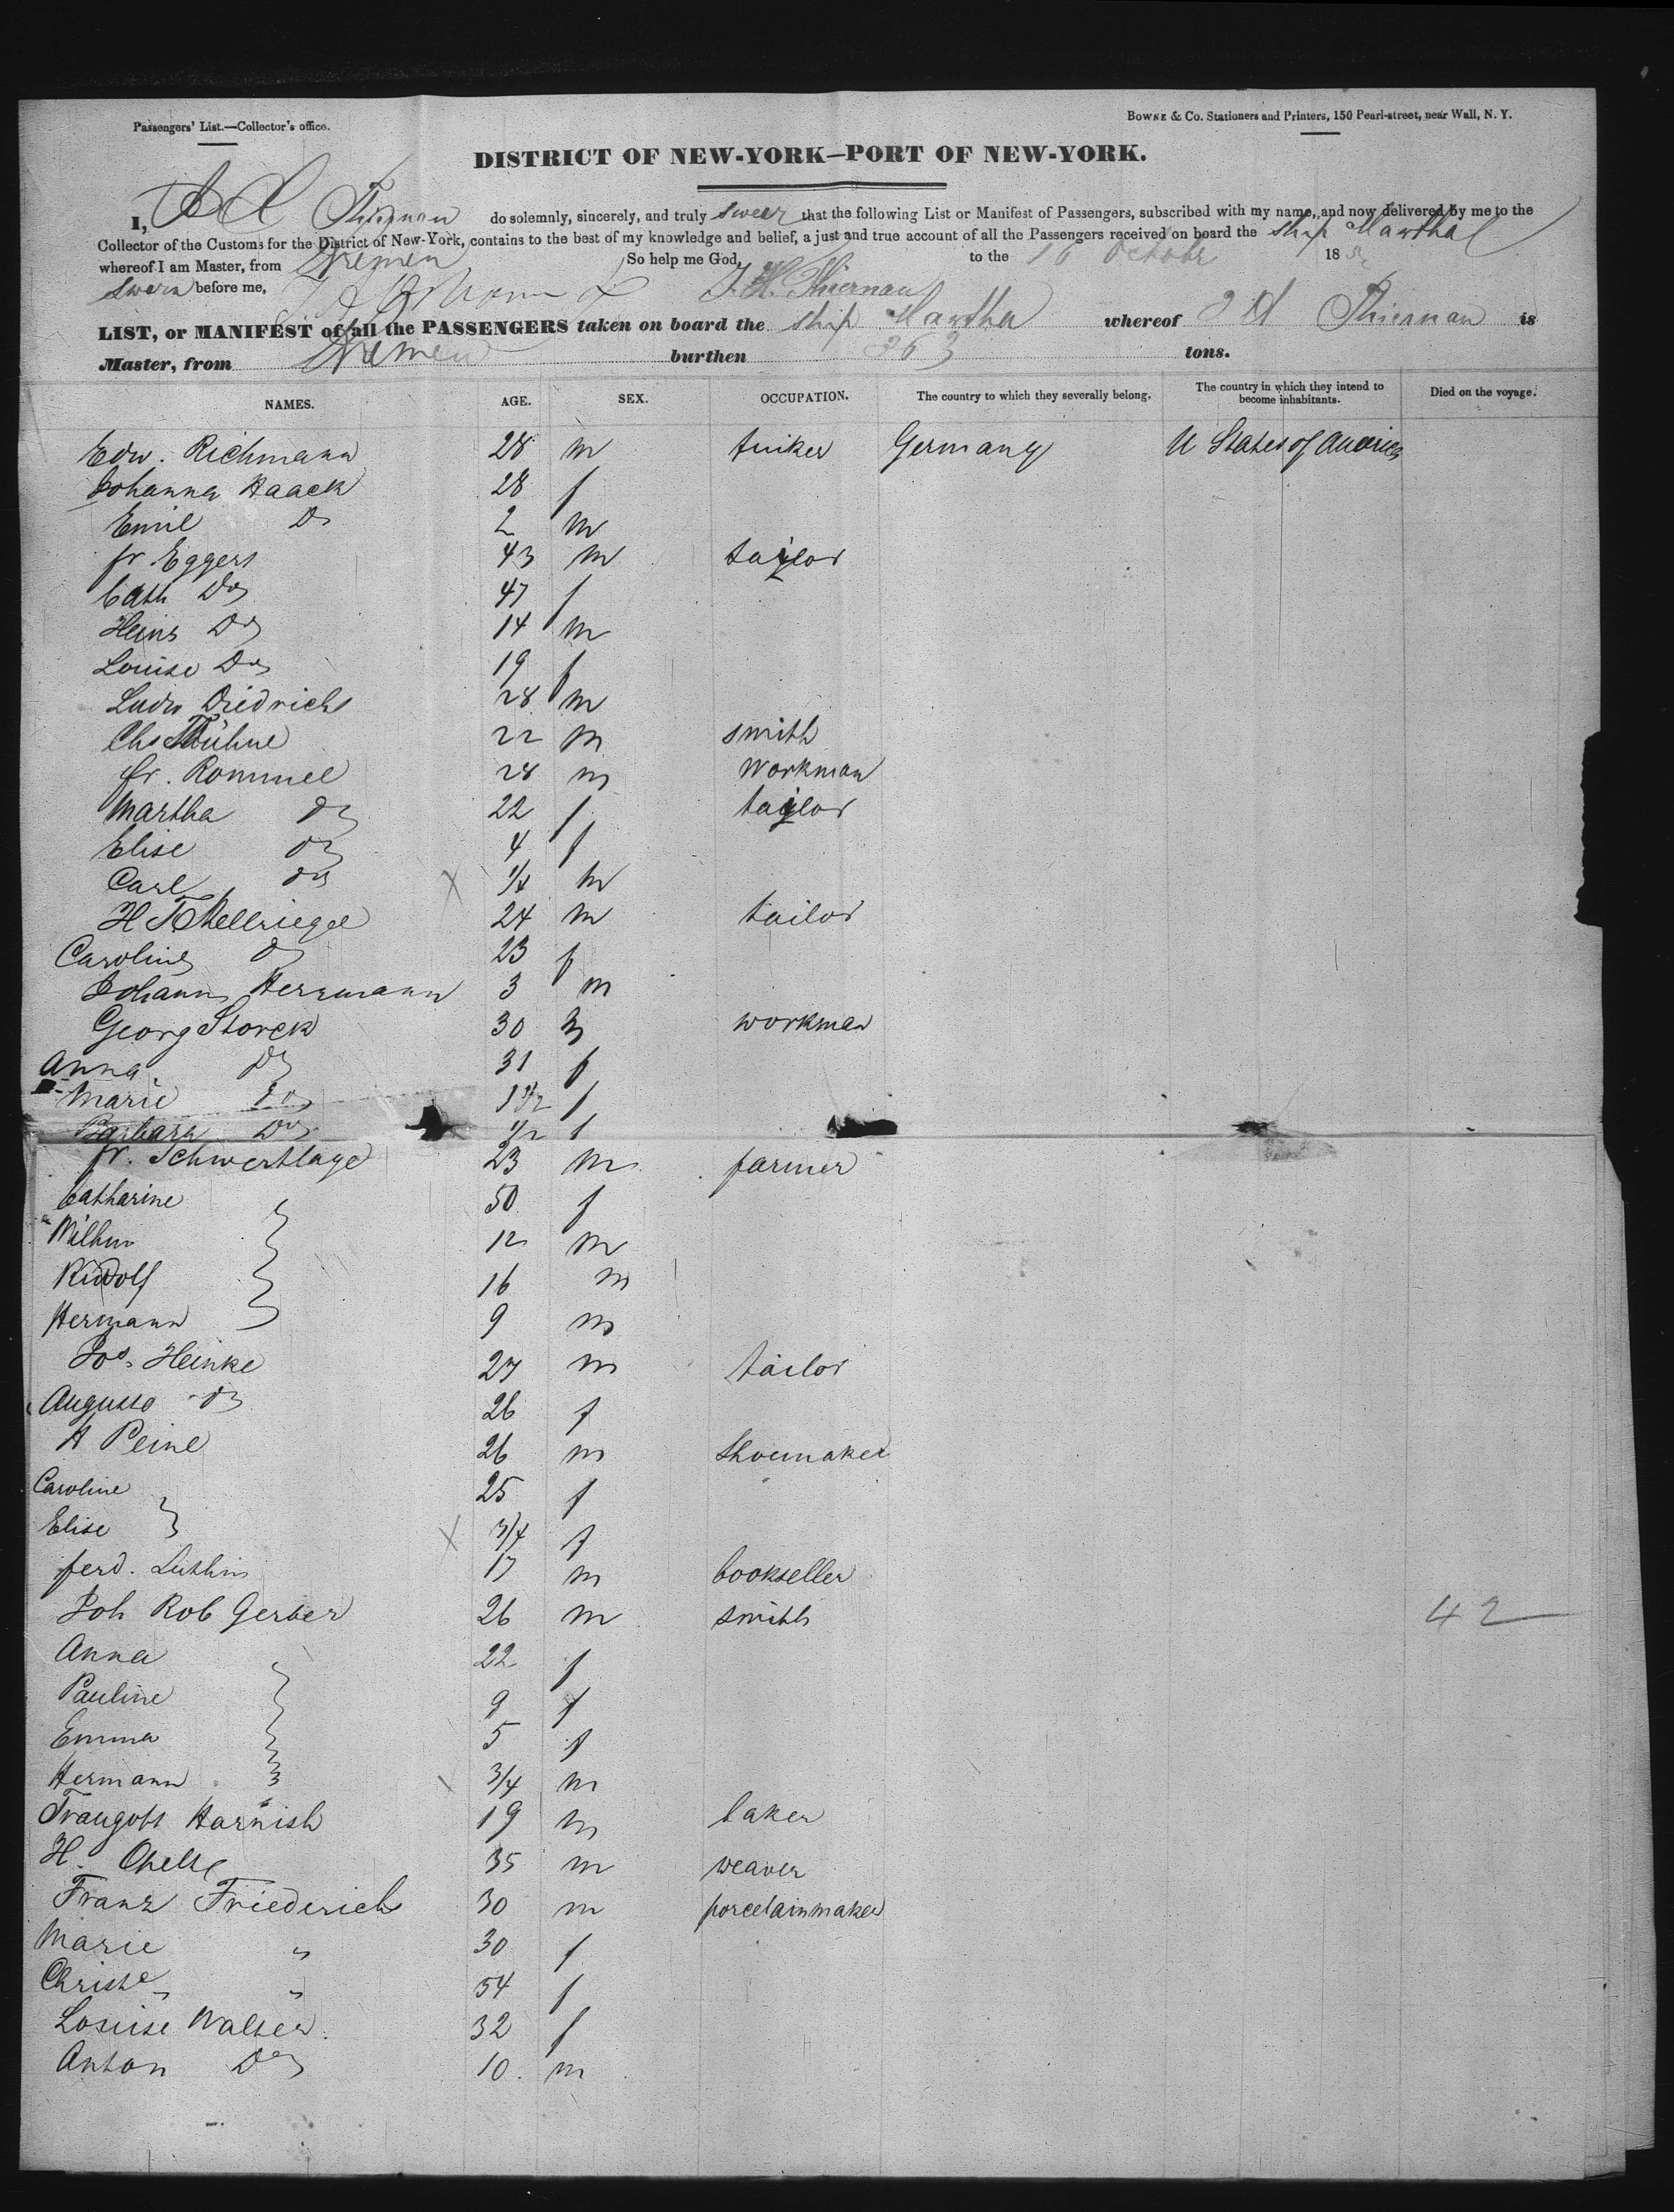 Passengers' List.—Collector's office.
BOWNE & Co. Stationers and Printers, 150 Pearl-street, near Wall, N. Y.
DISTRICT OF NEW-YORK—PORT OF NEW-YORK.
I, Thiernan do solemnly, sincerely, and truly swear that the following List or Manifest of Passengers, subscribed with my name, and now delivered by me to the
Collector of the Customs for the District of New-York, contains to the best of my knowledge and belief, a just and true account of all the Passengers received on board the ship Martha
whereof I am Master, from Bremen So help me God, to the 16 October 18
Sworn before me, J. H. Thiernan
LIST, or MANIFEST of all the PASSENGERS taken on board the ship Martha whereof J H Thiernan is
Master, from Bremen burthen 363 tons.
NAMES. AGE. SEX. OCCUPATION. The country to which they severally belong. The country in which they intend to become inhabitants. Died on the voyage.
Edw. Richmann 28 m Germany U States of America
Johanna Haack 28 f
Emil Do 2 m
fr Eggers 43 m taylor
Cath Do 47 f
Heinr Do 14 m
Louise Do 19 f
Ludw Diedrichs 28 m
Chs Thühne 22 m smith
fr. Rommel 28 m workman
Martha Do 22 f taylor
Elise Do 4 f
Carl Do 1/4 m
H T Hellriegel 24 m tailor
Caroline Do 23 f
Johann Herrmann 3 m
Georg Storck 30 m workman
Anna Do 31 f
Marie Do 1 1/2 f
Barbara Do 1/2 f
fr. Schwerttage 23 m farmer
Catharine 50 f
Wilhm 12 m
Rudolf 16 m
Hermann 9 m
Jos. Heinke 27 m tailor
Auguste Do 26 f
H Peine 26 m Shoemaker
Caroline 25 f
Elise 3/4 f
ferd. 17 m bookseller
Joh Rob Gerber 26 m smith 42
Anna 22 f
Pauline 9 f
Emma 5 f
Hermann 3/4 m
Traugott Harnish 19 m baker
H. 35 m weaver
Franz Friederichs 30 m porcelainmaker
Marie " 30 f
Christe " 54 f
Louise Walter. 32 f
Anton Do 10. m